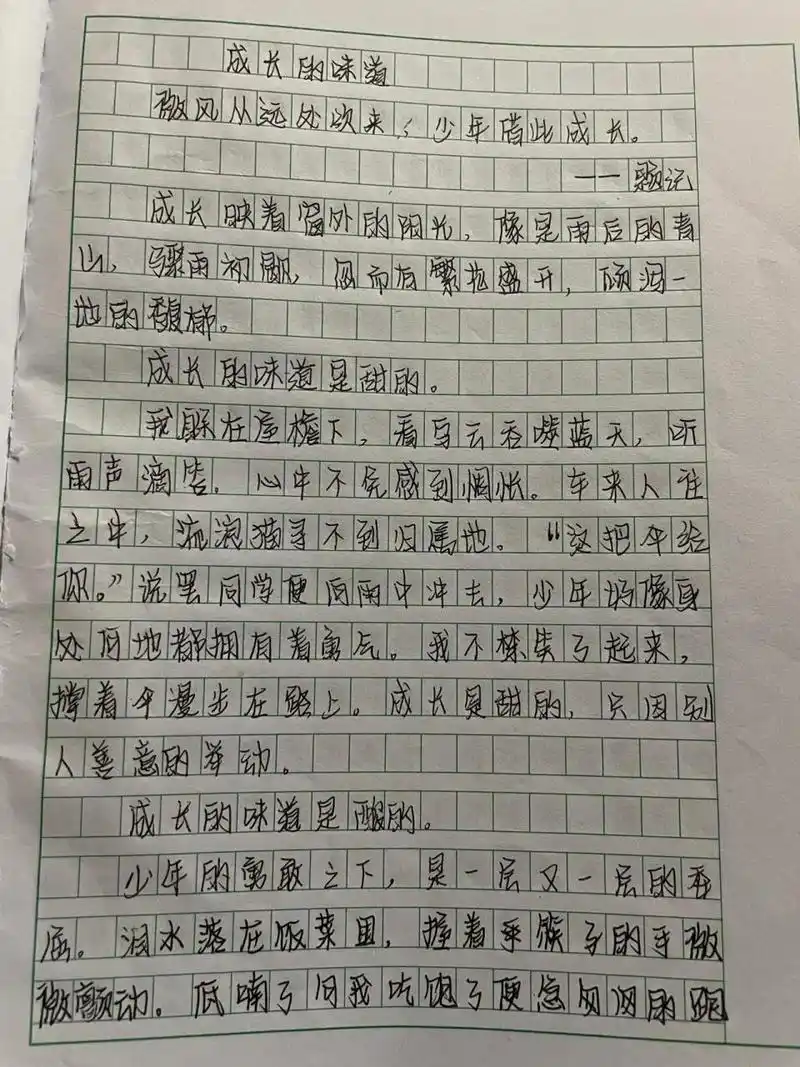 成长的味道
微风从远处吹来,少年借此成长。
——题记
成长映着窗外的阳光,像是雨后的青
山,骤雨初歇,忽而有繁花盛开,倾泻一
地的馥郁。
成长的味道是甜的。
我躲在屋檐下,看乌云吞噬蓝天,听
雨声滴答,心中不免感到惆怅。车来人往
之中,流浪猫寻不到归属地。“这把伞给
你。”说罢同学便向雨中冲去,少年好像身
处何地都拥有着勇气。我不禁笑了起来,
撑着伞漫步在路上。成长是甜的,只因别
人善意的举动。
成长的味道是酸的。
少年的勇敢之下,是一层又一层的委
屈。泪水落在饭菜里,握着筷子的手微
微颤动。低喃了句我吃饱了便急匆匆的跑